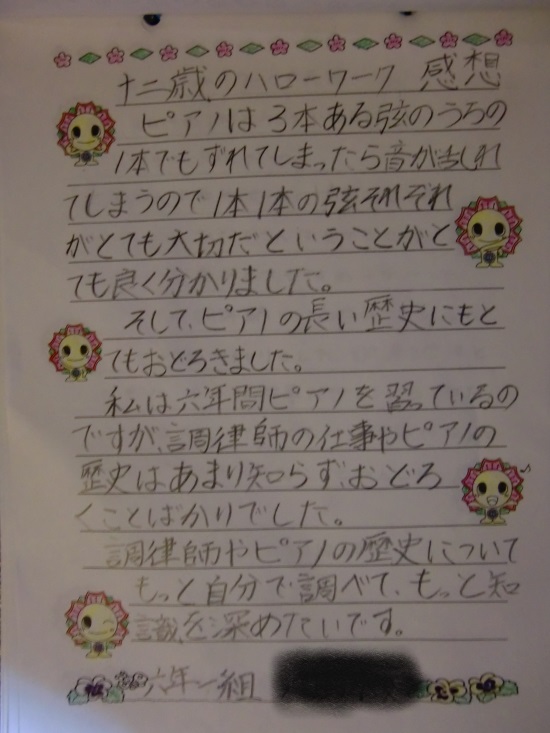 十二歳のハローワーク 感想
ピアノは3本ある弦のうちの
1本でもずれてしまったら音が乱れ
てしまうので1本1本の弦それぞれ
がとても大切だということがと
ても良く分かりました。
そして、ピアノの長い歴史にもと
てもおどろきました。
私は六年間ピアノを習っているの
ですが、調律師の仕事やピアノの
歴史はあまり知らず、おどろ
くことばかりでした。
調律師やピアノの歴史について
もっと自分で調べて、もっと知
識を深めたいです。
六年一組